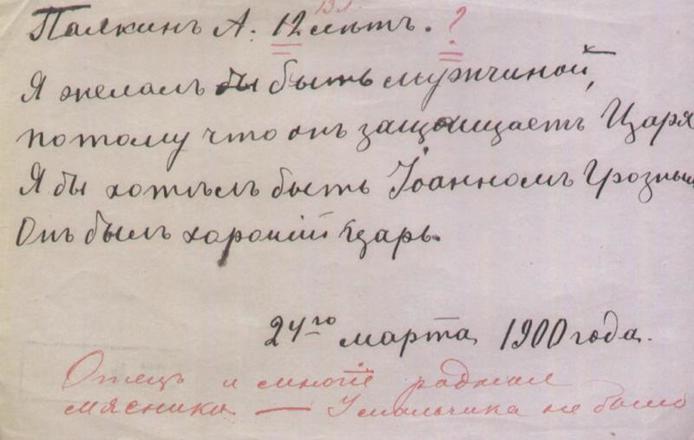 Палкинъ А. 12 лѣтъ. ?
Я желалъ бы быть мужчиной,
потому что онъ защищаетъ Царя
Я бы хотѣлъ быть Іоанномъ Грозным
Онъ былъ хорошій Царь.
24го марта 1900 года.
Отецъ и многіе родные
мясники — У мальчика не было